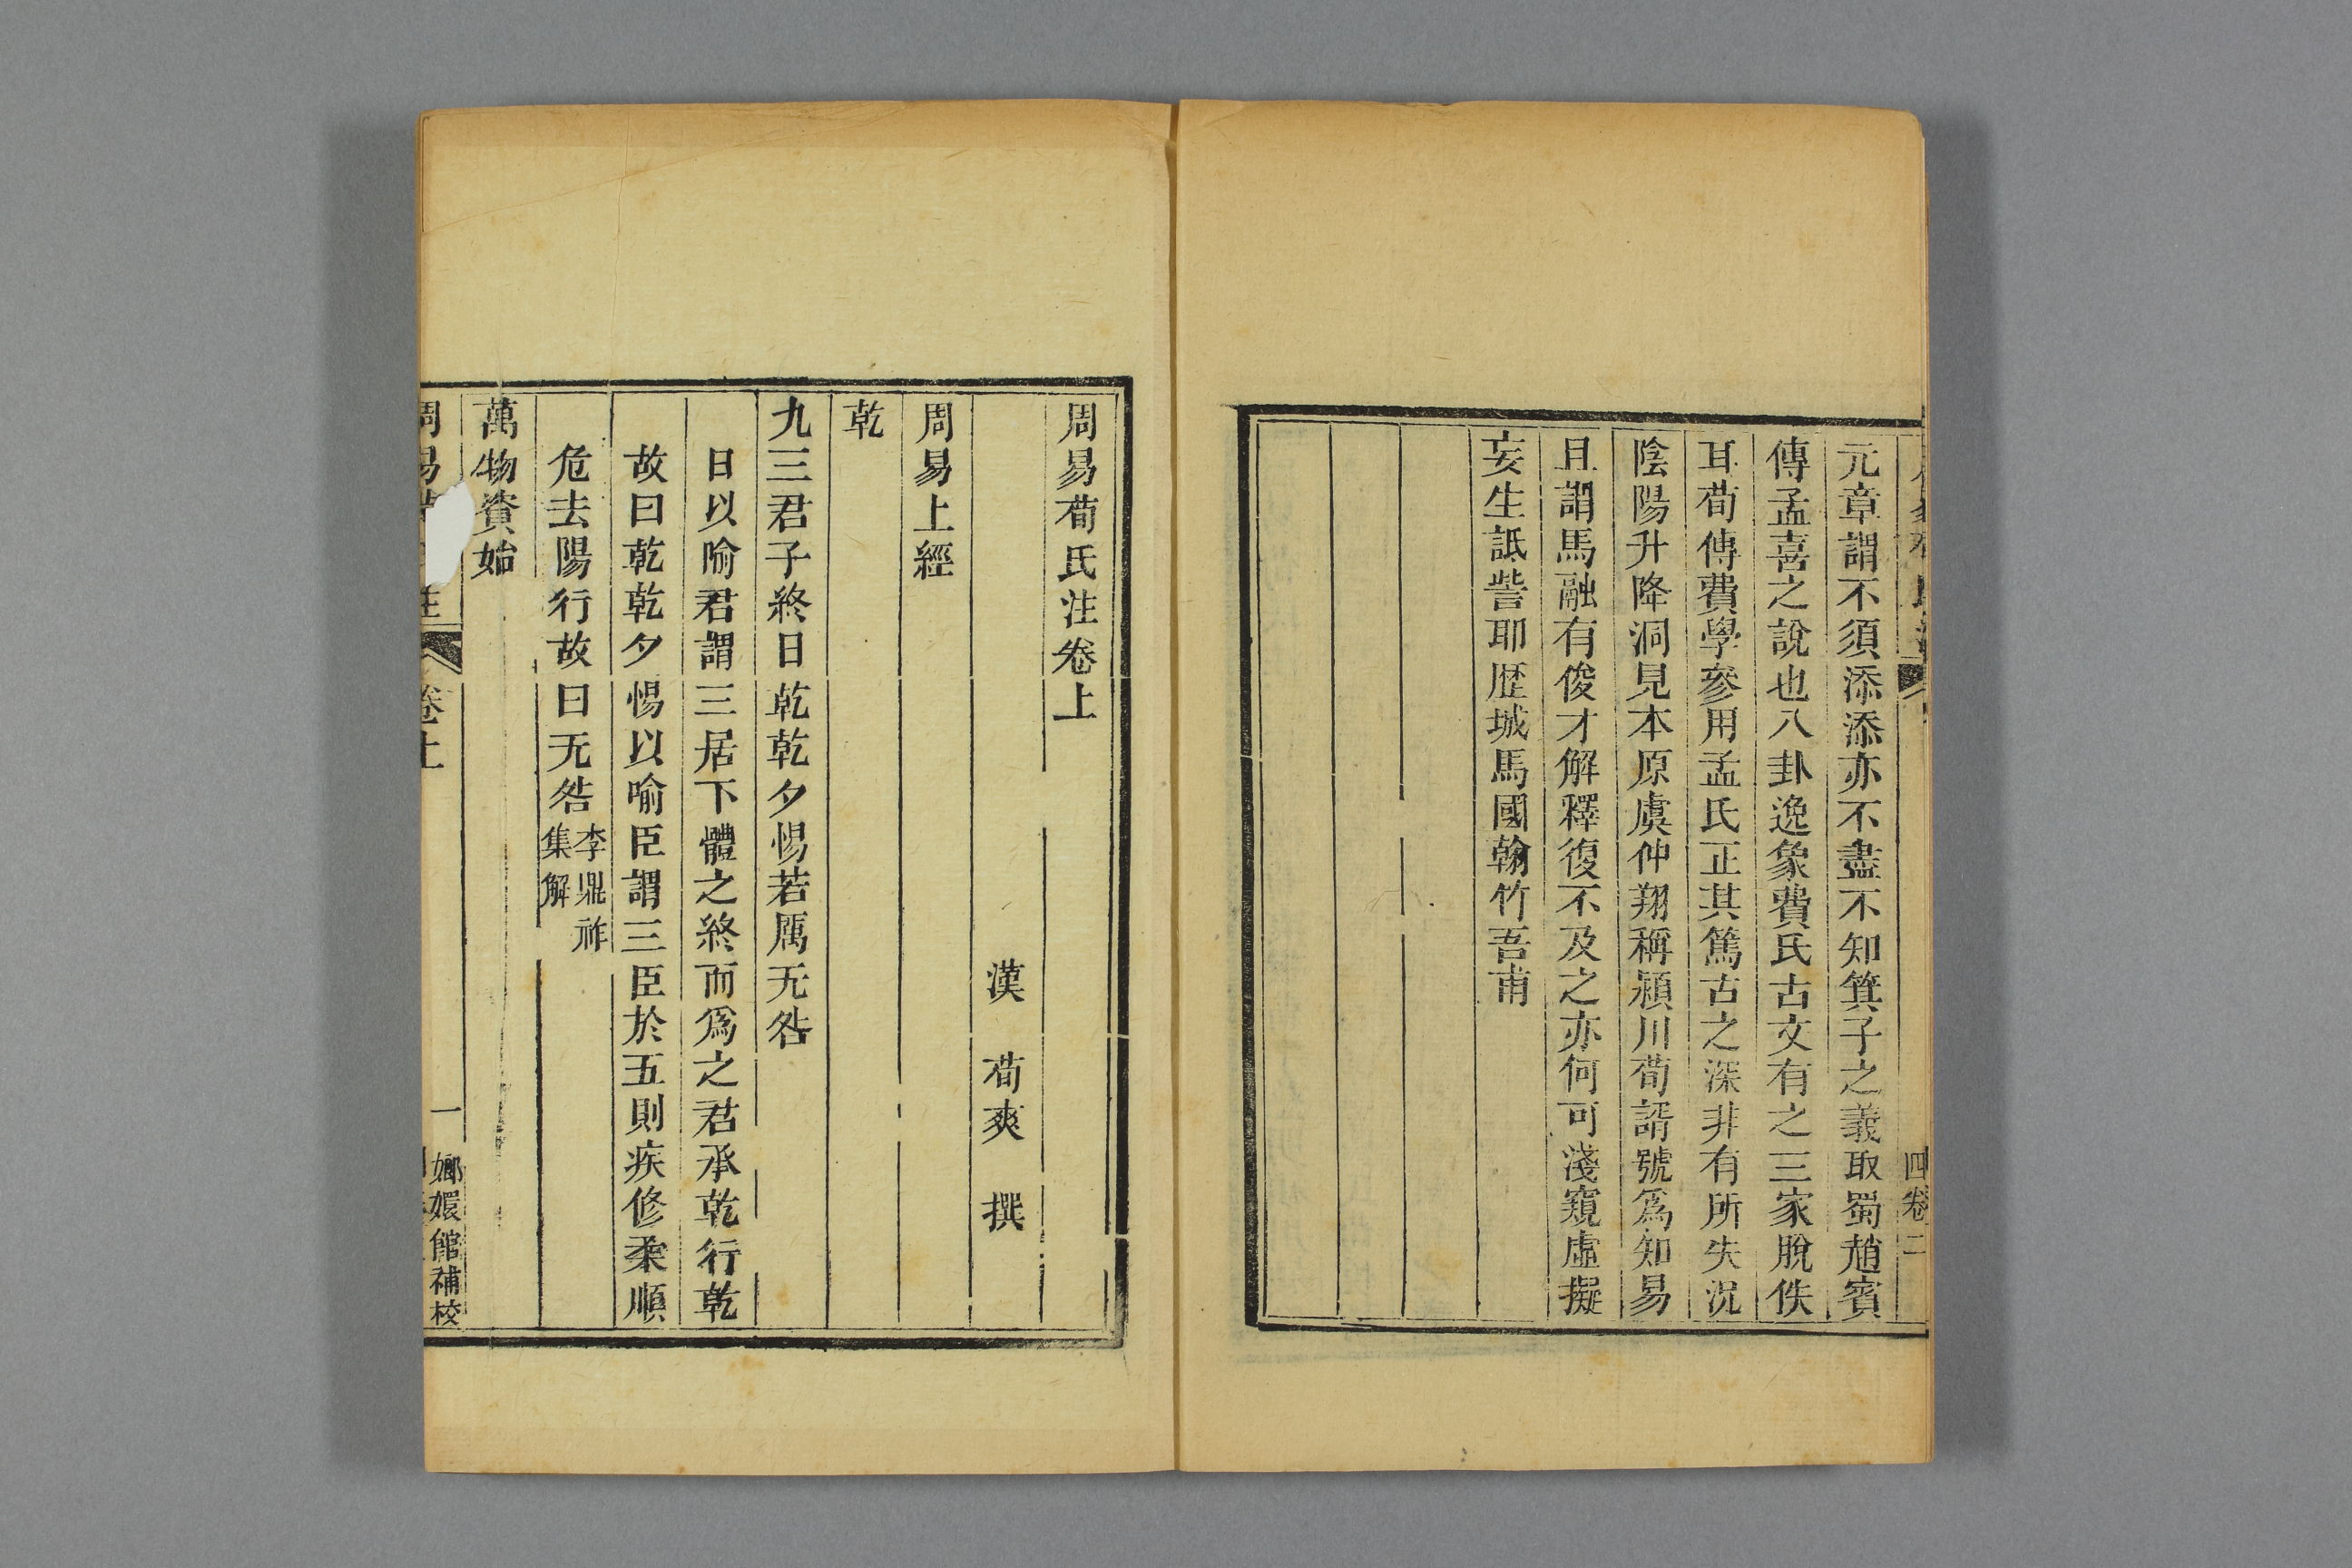 元章謂不須添添亦不盡不知箕子之義取蜀趙賓
傳孟喜之說也八卦逸象費氏古文有之三家脫佚
耳荀傳費學參用孟氏正其篤古之深非有所失況
陰陽升降洞見本原虞仲翔稱潁川荀諝號爲知易
且謂馬融有俊才解釋復不及之亦何可淺窺虛擬
妄生詆訾耶歷城馬國翰竹吾甫
四卷二
周易荀氏注卷上
漢 荀爽 撰
周易上經
乾
九三君子終日乾乾夕惕若厲无咎
日以喻君謂三居下體之終而爲之君承乾行乾
故曰乾乾夕惕以喻臣謂三臣於五則疾修柔順
危去陽行故曰无咎李鼎祚
集解
萬物資始
卷上
一
嫏嬛館補校